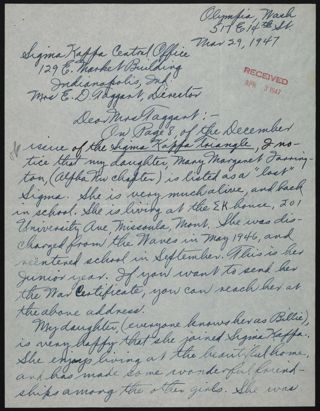 Olympia, Wash
517 E 14th St.
Mar 29, 1947
Sigma Kappa Central Office
129 E. Market Building
Indianapolis, Ind.
Mrs E. D. Taggart, Director
RECEIVED
APR 3 1947
Dear Mrs Taggart:-
On Page 8, of the December
issue of the Sigma Kappa Triangle, I no-
tice that my daughter, Mary Margaret Farring-
ton, (Alpha Nu chapter) is listed as a "lost"
Sigma. She is very much alive, and back
in school. She is living at the ΣK house, 201
University Ave, Missoula, Mont. She was dis-
charged from the Waves in May 1946, and
reentered school in September. This is her
Junior year. If you want to send her
the War Certificate, you can reach her at
the above address.
My daughter, (everyone knows her as Billie),
is very happy that she joined Sigma Kappa.
She enjoys living at the beautiful home,
and has made some wonderful friend-
ships among the other girls. She was